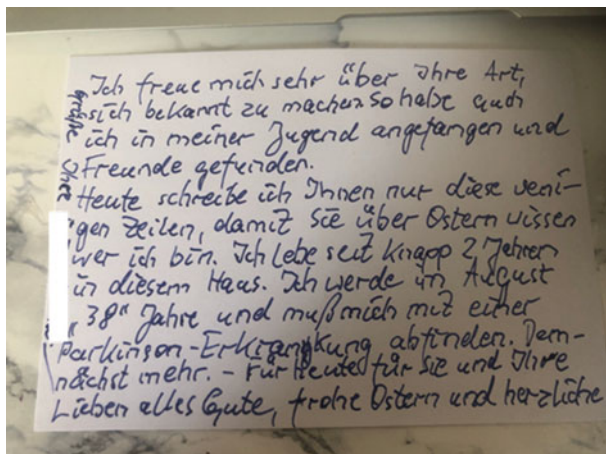 Ich freue mich sehr über Ihre Art,
sich bekannt zu machen. So habe auch
ich in meiner Jugend angefangen und
Freunde gefunden.
Heute schreibe ich Ihnen nur diese weni-
gen Zeilen, damit Sie über Ostern wissen
wer ich bin. Ich lebe seit knapp 2 Jahren
in diesem Haus. Ich werde im August
"38" Jahre und muß mich mit einer
Parkinson-Erkrangkung abfinden. Dem-
nächst mehr. - Für Heute für Sie und Ihre
Lieben alles Gute, frohe Ostern und herzliche
Grüße
Ihre